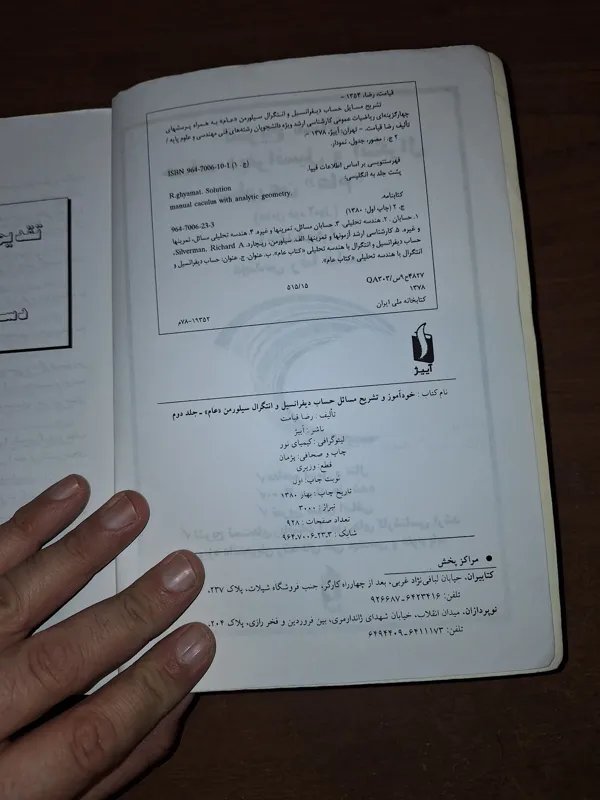 قیامت، رضا، ۱۳۵۴ -
تشریح مسایل حساب دیفرانسیل و انتگرال سیلورمن «عام» به همراه پرسشهای
چهارگزینه‌ای ریاضیات عمومی کارشناسی ارشد ویژه دانشجویان رشته‌های فنی مهندسی و علوم پایه /
تألیف رضا قیامت. - تهران: آییژ، ۱۳۷۸ -
۲ ج. : مصور، جدول، نمودار.
ISBN 964-7006-10-1 (ج. ۱)
فهرستنویسی بر اساس اطلاعات فیپا.
پشت جلد به انگلیسی:
R.ghyamat. Solution
manual cacolus with analytic geometry.
کتابنامه.
ج. ۲ (چاپ اول: ۱۳۸۰)
964-7006-23-3
۱. حسابان. ۲. هندسه تحلیلی. ۳. حسابان مسائل، تمرینها و غیره. ۴. هندسه تحلیلی مسائل، تمرینها
و غیره. ۵. کارشناسی ارشد آزمونها و تمرینها. الف. سیلورمن، ریچارد. Silverman, Richard A،
حساب دیفرانسیل و انتگرال با هندسه تحلیلی «کتاب عام». ب. عنوان. ج. عنوان: حساب دیفرانسیل و
انتگرال با هندسه تحلیلی «کتاب عام».
۵۱۵/۱۵
QA۳۰۳/س۹ح۴۸۲۷
۱۳۷۸
کتابخانه ملی ایران
۷۸-۱۹۳۵۲م
آییژ
نام کتاب : خودآموز و تشریح مسائل حساب دیفرانسیل و انتگرال سیلورمن «عام» - جلد دوم
تألیف : رضا قیامت
ناشر : آییژ
لیتوگرافی : کیمیای نور
چاپ و صحافی: پژمان
قطع: وزیری
نوبت چاپ: اول
تاریخ چاپ: بهار ۱۳۸۰
تیراژ: ۳۰۰۰
تعداد صفحات : ۹۲۸
شابک : ۳-۲۳-۷۰۰۶-۹۶۴
● مراکز پخش
کتابیران، خیابان لبافی‌نژاد غربی، بعد از چهارراه کارگر، جنب فروشگاه شیلات، پلاک ۲۳۷،
تلفن: ۶۴۲۳۴۱۶-۹۲۶۶۸۷
نوپردازان، میدان انقلاب، خیابان شهدای ژاندارمری، بین فروردین و فخر رازی، پلاک ۲۰۴،
تلفن: ۶۴۱۱۱۷۳-۶۴۹۴۴۰۹